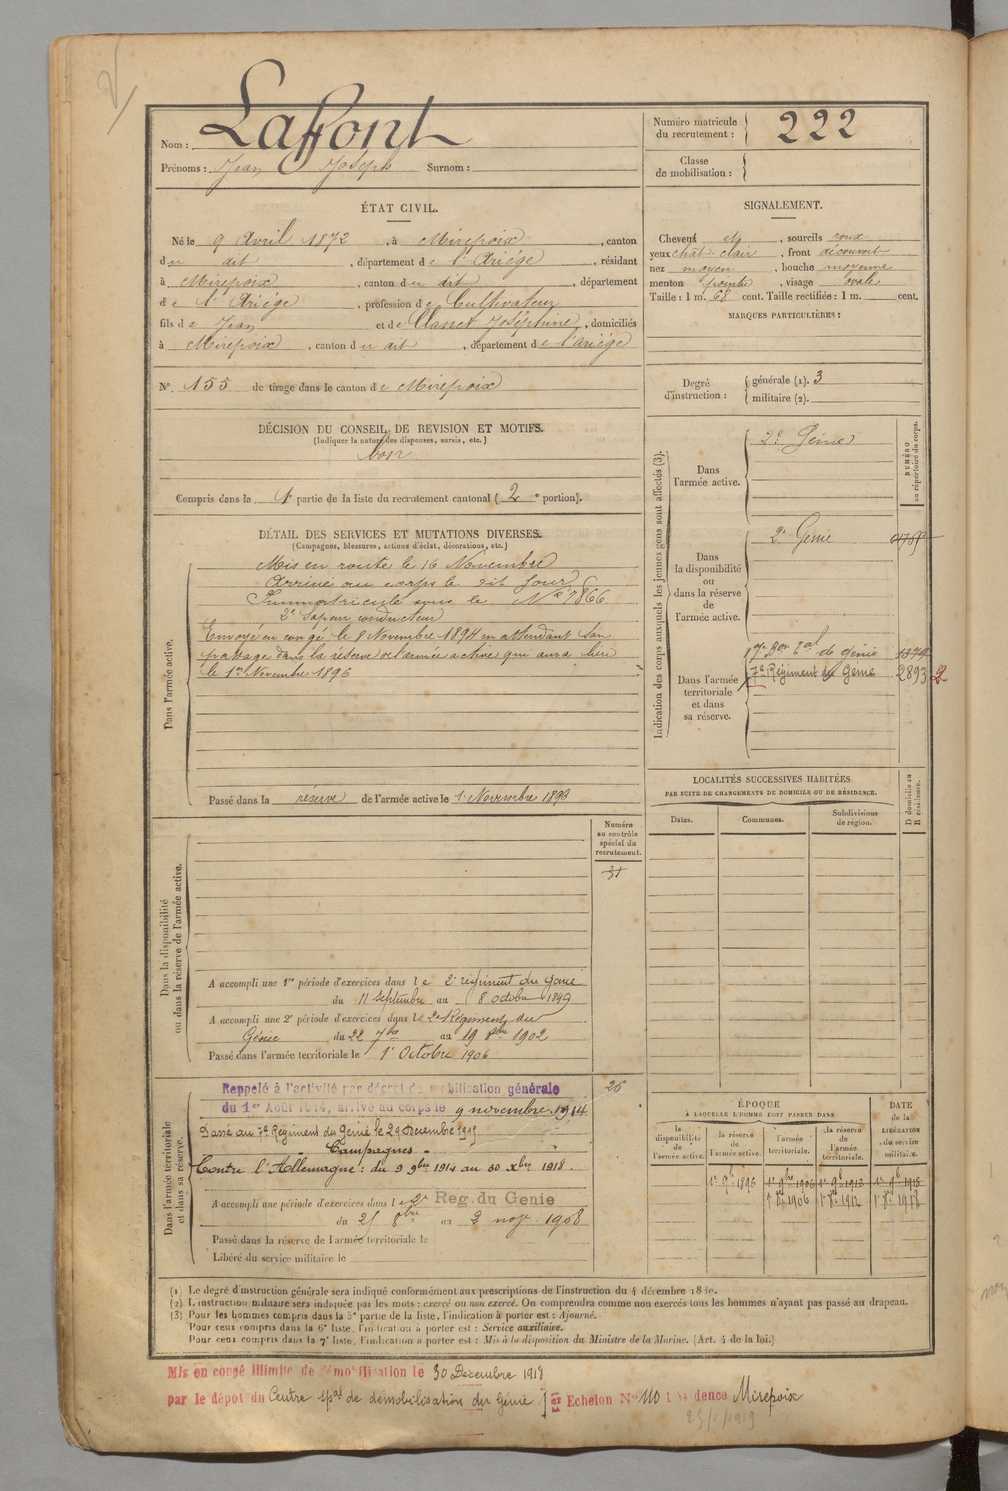 Nom : Laffont
Prénoms : Jean Joseph Surnom :
Numéro matricule du recrutement : 222
Classe de mobilisation :
ÉTAT CIVIL.
Né le 9 Avril 1872, à Mirepoix, canton
du dit, département de l'Ariége, résidant
à Mirepoix, canton du dit, département
de l'Ariége, profession de Cultivateur
fils de Jean et de Joséphine, domiciliés
à Mirepoix, canton du dit, département de l'ariége
N° 155 de tirage dans le canton de Mirepoix
DÉCISION DU CONSEIL DE REVISION ET MOTIFS.
(Indiquer la nature des dispenses, sursis, etc.)
bon
Compris dans la 1e partie de la liste du recrutement cantonal (2e portion).
SIGNALEMENT.
Cheveux et, sourcils roux
yeux chât-clair, front découvert
nez moyen, bouche moyenne
menton pointu, visage ovale
Taille : 1 m. 68 cent. Taille rectifiée : 1 m. cent.
MARQUES PARTICULIÈRES :
Degré d'instruction : générale (1). 3
militaire (2).
DÉTAIL DES SERVICES ET MUTATIONS DIVERSES.
(Campagnes, blessures, actions d'éclat, décorations, etc.)
Dans l'armée active.
Mis en route le 16 Novembre
Arrivé au corps le dit jour
Immatriculé sous le N° 7866
2e Sapeur conducteur
Envoyé en congé le 8 Novembre 1894 en attendant son
passage dans la réserve de l'armée active qui aura lieu
le 1er Novembre 1896
Passé dans la réserve de l'armée active le 1 Novembre 1896
Indication des corps auxquels les jeunes gens sont affectés (3).
NUMÉRO au répertoire du corps.
Dans l'armée active.
2e Génie
Dans la disponibilité ou dans la réserve de l'armée active.
2e Génie
Dans l'armée territoriale et dans sa réserve.
17e Bon Tal de génie 1379
7e Régiment du Génie 2893 2
LOCALITÉS SUCCESSIVES HABITÉES
PAR SUITE DE CHANGEMENTS DE DOMICILE OU DE RÉSIDENCE.
Dates. Communes. Subdivisions de région. D domicile ou R résidence.
Dans la disponibilité ou dans la réserve de l'armée active.
Numéro au contrôle spécial du recrutement.
31
A accompli une 1re période d'exercices dans le 2e régiment du génie
du 11 septembre au 8 octobre 1899
A accompli une 2e période d'exercices dans le 2e Régiment du
Génie du 22 7bre au 19 8bre 1902
Passé dans l'armée territoriale le 1er Octobre 1906
Dans l'armée territoriale et dans sa réserve.
26
Rappelé à l'activité par décret de mobilisation générale
du 1er Août 1914, arrivé au corps le 9 novembre 1914
Passé au 7e Régiment du Génie le 29 Décembre 1915
Campagnes
Contre l'Allemagne : du 9 9bre 1914 au 30 Xbre 1918.
A accompli une période d'exercices dans le 2e Reg. du Genie
du 25 8bre au 2 nove 1908
Passé dans la réserve de l'armée territoriale le
Libéré du service militaire le
ÉPOQUE
À LAQUELLE L'HOMME DOIT PASSER DANS
DATE de la LIBÉRATION du service militaire.
la disponibilité de l'armée active. la réserve de l'armée active. l'armée territoriale. la réserve de l'armée territoriale.
1er 9b 1896 1er 9bre 1906 1er 9b 1912 1er 9b 1918
1er 8b 1906 1er 8b 1912 1er 8b 1918
(1) Le degré d'instruction générale sera indiqué conformément aux prescriptions de l'instruction du 4 décembre 1889.
(2) L'instruction militaire sera indiquée par les mots : exercé ou non exercé. On comprendra comme non exercés tous les hommes n'ayant pas passé au drapeau.
(3) Pour les hommes compris dans la 5e partie de la liste, l'indication à porter est : Ajourné.
Pour ceux compris dans la 6e liste, l'indication à porter est : Service auxiliaire.
Pour ceux compris dans la 7e liste, l'indication à porter est : Mis à la disposition du Ministre de la Marine. (Art. 4 de la loi.)
Mis en congé illimité de démobilisation le 30 Décembre 1918
par le dépot du Centre spal de démobilisation du Génie 1er Echelon N° 110 résidence Mirepoix
25/1/1919